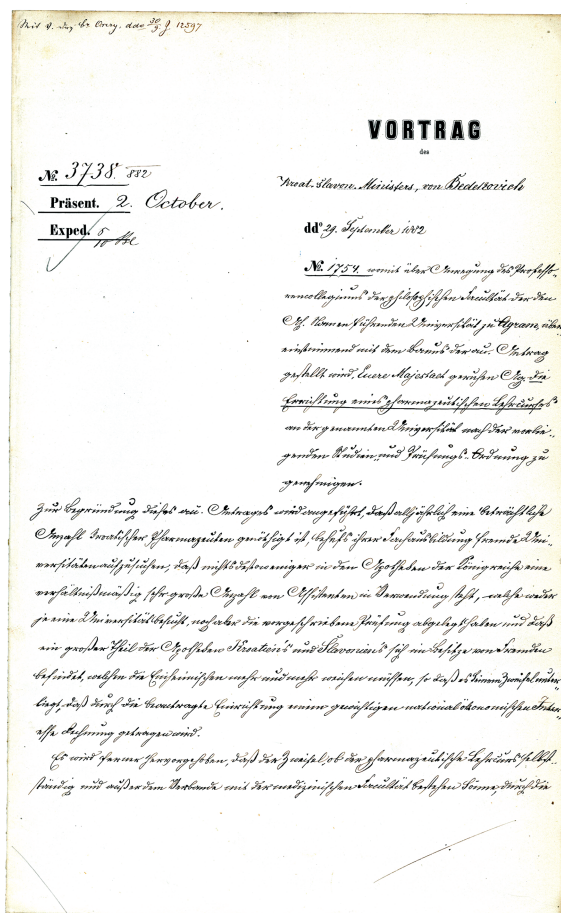 Mit a. . . . ddo 30/9 Z. 12597
VORTRAG
des
Kroat. Slavon. Ministers, von Bedekovich
№. 3738. 882
Präsent. 2. October.
Exped. 5/10
ddo 29. September 1882
№. 1754. womit über Anregung des Professo-
rencollegiums der philosophischen Facultät der den
Ah. Namen führenden Universität zu Agram, über-
einstimmend mit dem Banus der au. Antrag
gestellt wird, Euere Majestaet geruhen Ag. die
Errichtung eines pharmazeutischen Lehrcurses
an der genannten Universität nach der vorlie-
genden Studien- und Prüfungs-Ordnung zu
genehmigen.
Zur Begründung dieses au. Antrages wird angeführt, daß alljährlich eine beträchtliche
Anzahl kroatischer Pharmazeuten genöthigt ist, behufs ihrer Fachausbildung fremde Uni-
versitäten aufzusuchen, daß nichts destoweniger in den Apotheken der Königreiche eine
verhältnißmäßig sehr große Anzahl von Assistenten in Verwendung steht, welche weder
je eine Universität besucht, noch aber die vorgeschriebene Prüfung abgelegt haben und daß
ein großer Theil der Apotheken Kroatien's und Slavonien's sich im Besitze von Fremden
befindet, welchen die Einheimischen mehr und mehr weichen müssen, so daß es keinem Zweifel unter-
liegt, daß durch die beantragte Einrichtung einem gewichtigen nationalökonomischen Inter-
esse Rechnung getragen wird.
Es wird ferner hervorgehoben, daß der Zweifel, ob der pharmazeutische Lehrcurs selbst-
ständig und außer dem Verbande mit der medizinischen Facultät bestehen könne, durch die